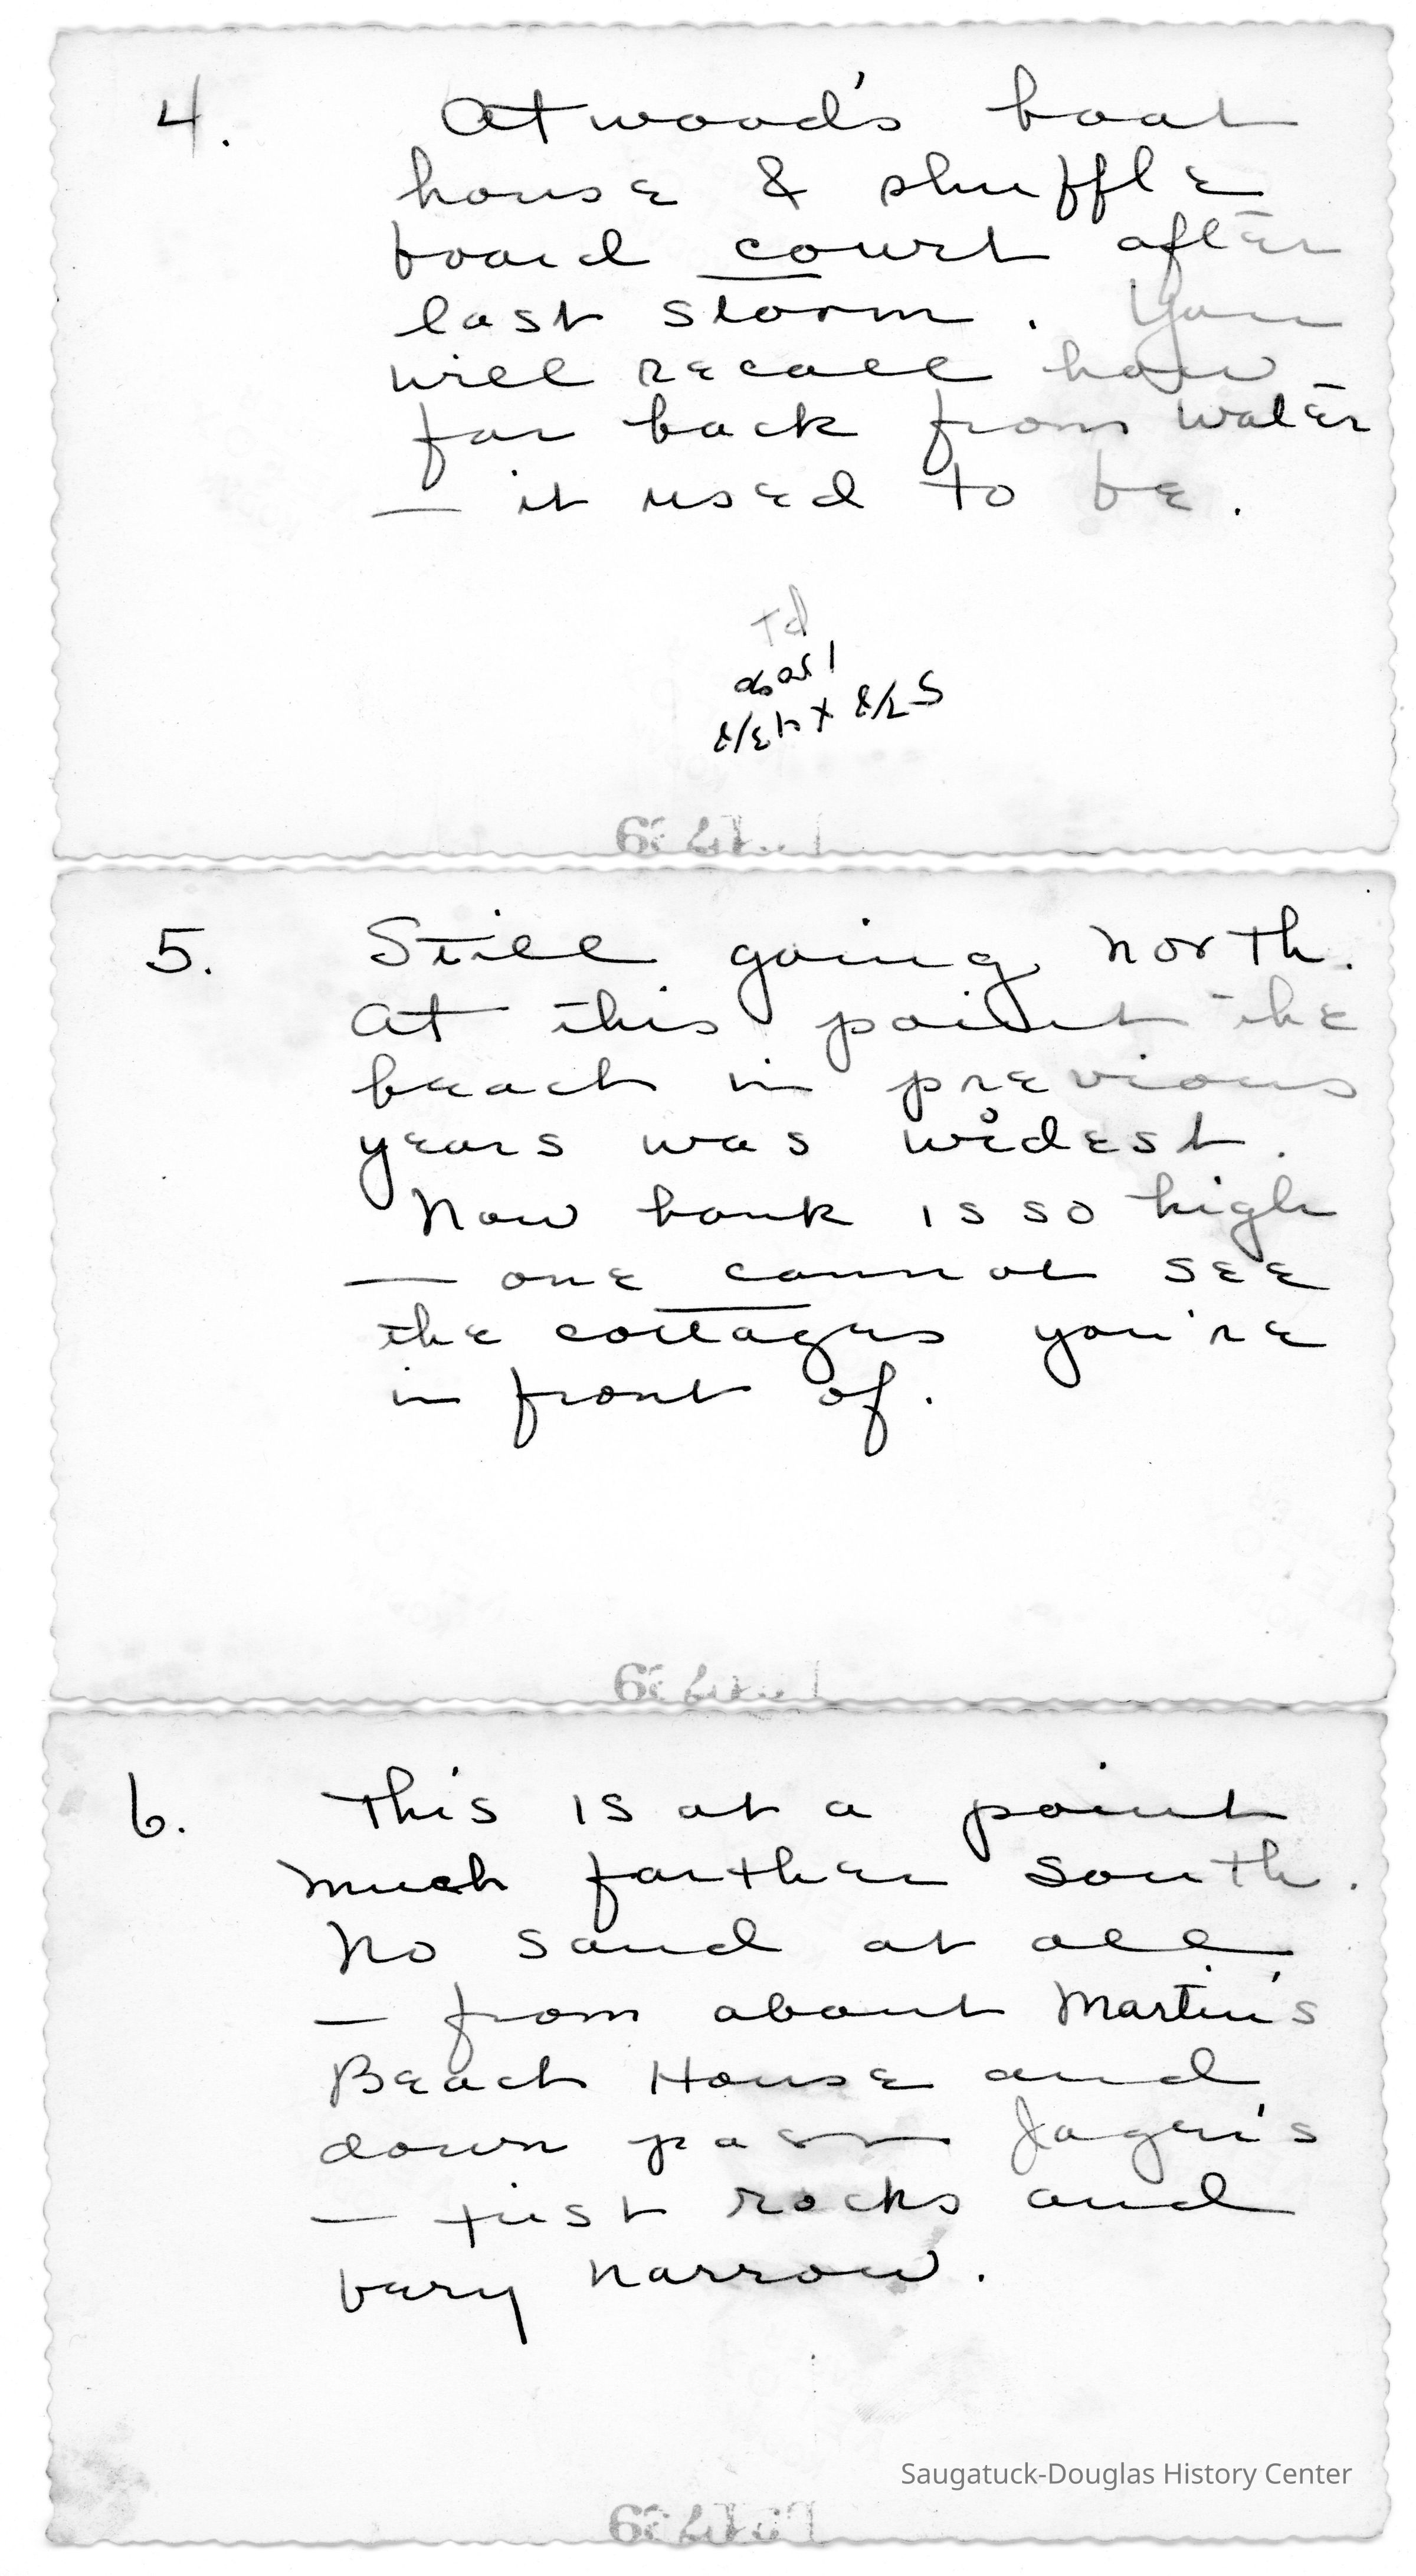 4. Atwood's boat
house & shuffle
board court after
last storm. You
will recall how
far back from water
— it used to be.
5. Still going north.
At this point the
beach in previous
years was widest.
Now bank is so high
— one cannot see
the cottages you're
in front of.
6. This is at a point
much farther south.
No sand at all
— from about Martin's
Beach House and
down past Jager's
— just rocks and
very narrow.
Saugatuck-Douglas History Center